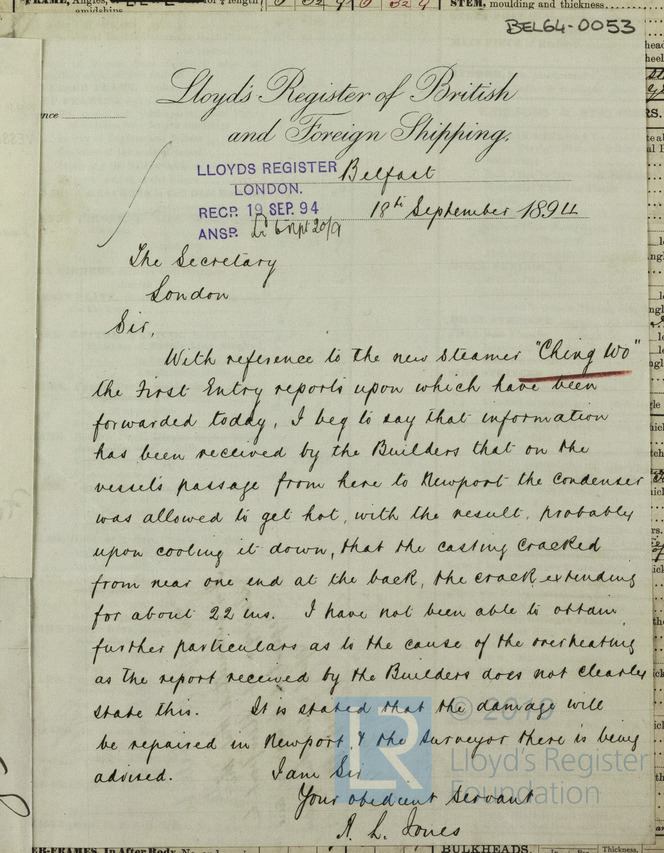 FRAME, Angles,
for ¾ length
STEM, moulding and thickness
amidships
BEL64-0053
Lloyd's Register of British
and Foreign Shipping.
LLOYDS REGISTER
LONDON.
RECP. 19 SEP. 94
ANSP.
Belfast
18th September 1894
The Secretary
London
Sir,
With reference to the new steamer "Ching Wo"
the First Entry reports upon which have been
forwarded today, I beg to say that information
has been received by the Builders that on the
vessels passage from here to Newport the condenser
was allowed to get hot, with the result, probably
upon cooling it down, that the casting cracked
from near one end at the back, the crack extending
for about 22 ins. I have not been able to obtain
further particulars as to the cause of the overheating
as the report received by the Builders does not clearly
state this. It is stated that the damage will
be repaired in Newport, & the Surveyor there is being
advised. I am Sir
Your obedient servant
R. L. Jones
© 2019
LR
Lloyd's Register
Foundation
ER-FRAMES, In After Body, No
BULKHEADS.
Thickness.